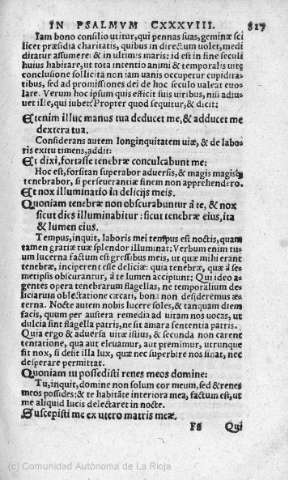 IN PSALMVM CXXXVIII. 817
Iam bono consilio utitur, qui pennas suas, geminæ sci
licet præsidia charitatis, quibus in directum uolet, medi
ditatur assumere: & in ultimis maris: id est in fine seculi
huius habitare, ut tota intentio animi & temporalis uitę
conclusione sollicita non iam uanis occupetur cupidita-
tibus, sed ad promissiones dei de hoc seculo ualeat euo
lare. Verum hoc ipsum quis efficit suis uiribus, nisi adiu-
uet ille, qui iubet? Propter quod sequitur, & dicit:
Etenim illuc manus tua deducet me, & adducet me
dextera tua.
Considerans autem longinquitatem uiæ, & de labo
ris exitu timens, addit:
Et dixi, fortasse tenebræ conculcabunt me:
Hoc est, forsitan superabor aduersis, & magis magisq;
tenebrabor, si perseuerantiæ finem non apprehendero.
Et nox illuminatio in delicijs meis.
Quoniam tenebræ non obscurabuntur à te, & nox
sicut dies illuminabitur: sicut tenebræ eius, ita
& lumen eius.
Tempus, inquit, laboris mei tempus est noctis, quam
tamen gratiæ tuæ splendor illuminat: Verbum enim tu-
um lucerna factum est gressibus meis, ut quæ mihi erant
tenebræ, inciperent esse deliciæ: quia tenebræ, quæ à se-
metipsis obscurantur, à te lumen accipiunt: Qui ideo a-
gentes opera tenebrarum flagellas, ne temporalium des
liciarum oblectatione cæcati, boni non desideremus æ-
terna. Nocte autem nobis lucere soles, & tanquam diem
facis, quum per austera remedia ad uitam nos uocas, ut
dulcia sint flagella patris, ne sit amara sententia patris.
Quia ergo & aduersa uitæ istius, & secunda non carent
tentatione, qua aut eleuamur, aut premimur, utrunque
fit nox, si desit illa lux, quæ nec superbire nos sinat, nec
desperare permittat.
Quoniam tu possedisti renes meos domine:
Tu, inquit, domine non solum cor meum, sed & renes
meos possides: & te habitate interiora mea, factum est, ut
me aliquid lucis delectaret in nocte.
Suscepisti me ex utero matris meæ.
Qui
(c) Comunidad Autónoma de La Rioja